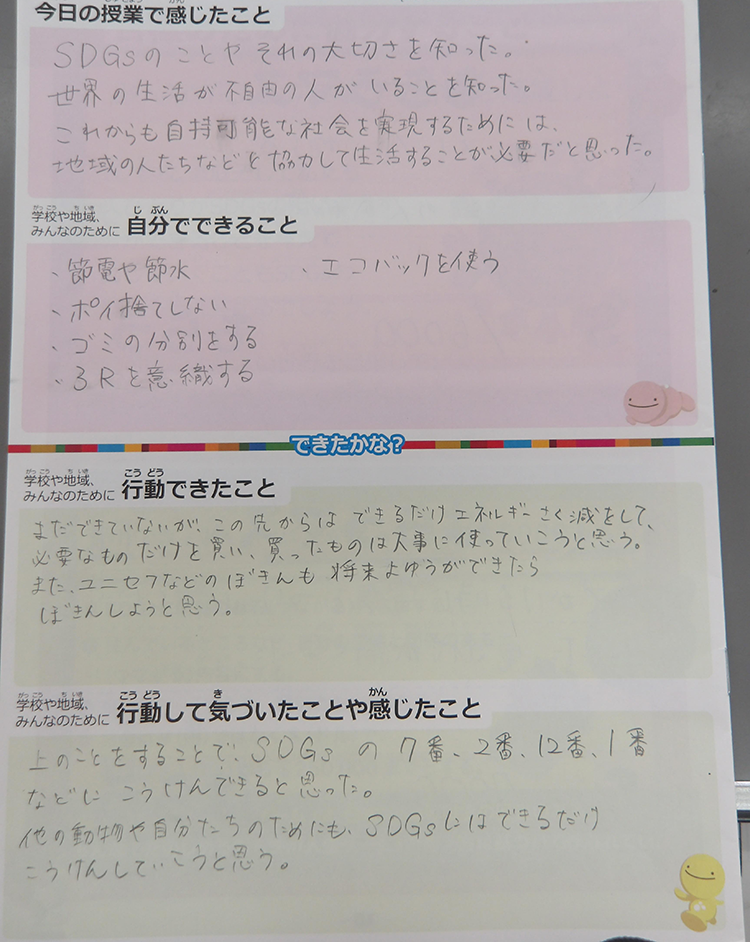 今日の授業で感じたこと
SDGsのことやそれの大切さを知った。
世界の生活が不自由の人がいることを知った。
これからも自持可能な社会を実現するためには、
地域の人たちなどと協力して生活することが必要だと思った。
学校や地域、みんなのために 自分でできること
、節電や節水 、エコバックを使う
、ポイ捨てしない
、ゴミの分別をする
、3Rを意織する
できたかな?
学校や地域、みんなのために 行動できたこと
まだできていないが、この先からはできるだけエネルギーさく減をして、
必要なものだけを買い、買ったものは大事に使っていこうと思う。
また、ユニセフなどのぼきんも将来よゆうができたら
ぼきんしようと思う。
学校や地域、みんなのために 行動して気づいたことや感じたこと
上のことをすることで、SDGsの7番、2番、12番、1番
などにこうけんできると思った。
他の動物や自分たちのためにも、SDGsにはできるだけ
こうけんしていこうと思う。